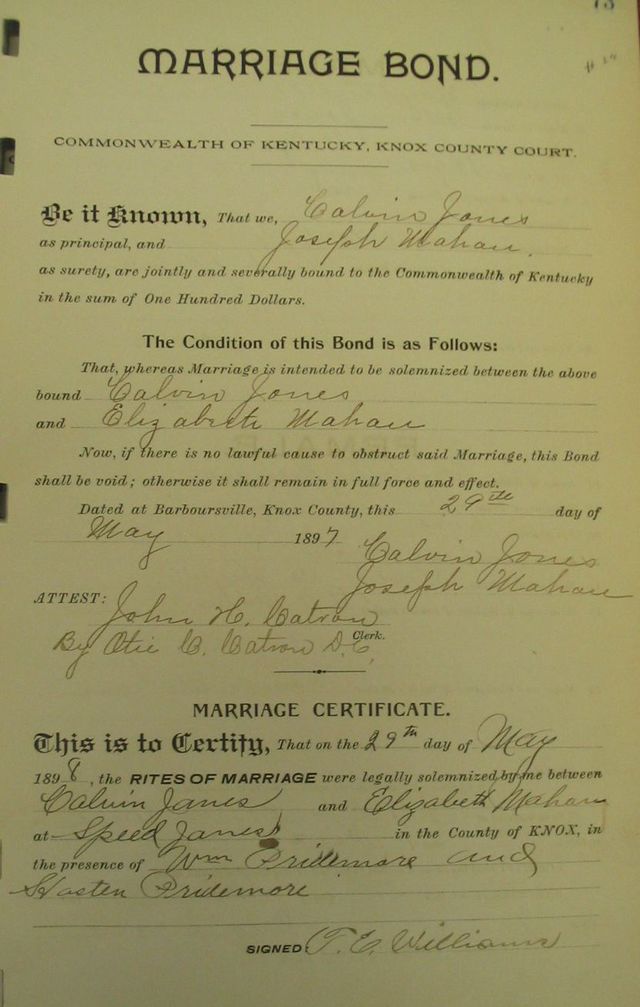 73
MARRIAGE BOND.
COMMONWEALTH OF KENTUCKY, KNOX COUNTY COURT.
Be it Known, That we, Calvin Jones
as principal, and Joseph Mahan.
as surety, are jointly and severally bound to the Commonwealth of Kentucky
in the sum of One Hundred Dollars.
The Condition of this Bond is as Follows:
That, whereas Marriage is intended to be solemnized between the above
bound Calvin Jones
and Elizabeth Mahan
Now, if there is no lawful cause to obstruct said Marriage, this Bond
shall be void; otherwise it shall remain in full force and effect.
Dated at Barboursville, Knox County, this 29th day of
May 1897
Calvin Jones
Joseph Mahan
ATTEST:
John H. Catron
Clerk.
By Otie C. Catron D.C.
MARRIAGE CERTIFICATE.
This is to Certify, That on the 29th day of May
1898, the RITES OF MARRIAGE were legally solemnized by me between
Calvin Janes and Elizabeth Mahan
at Speed Janes in the County of KNOX, in
the presence of Wm Pridemore and
Hasten Pridemore
SIGNED T. C. Williams